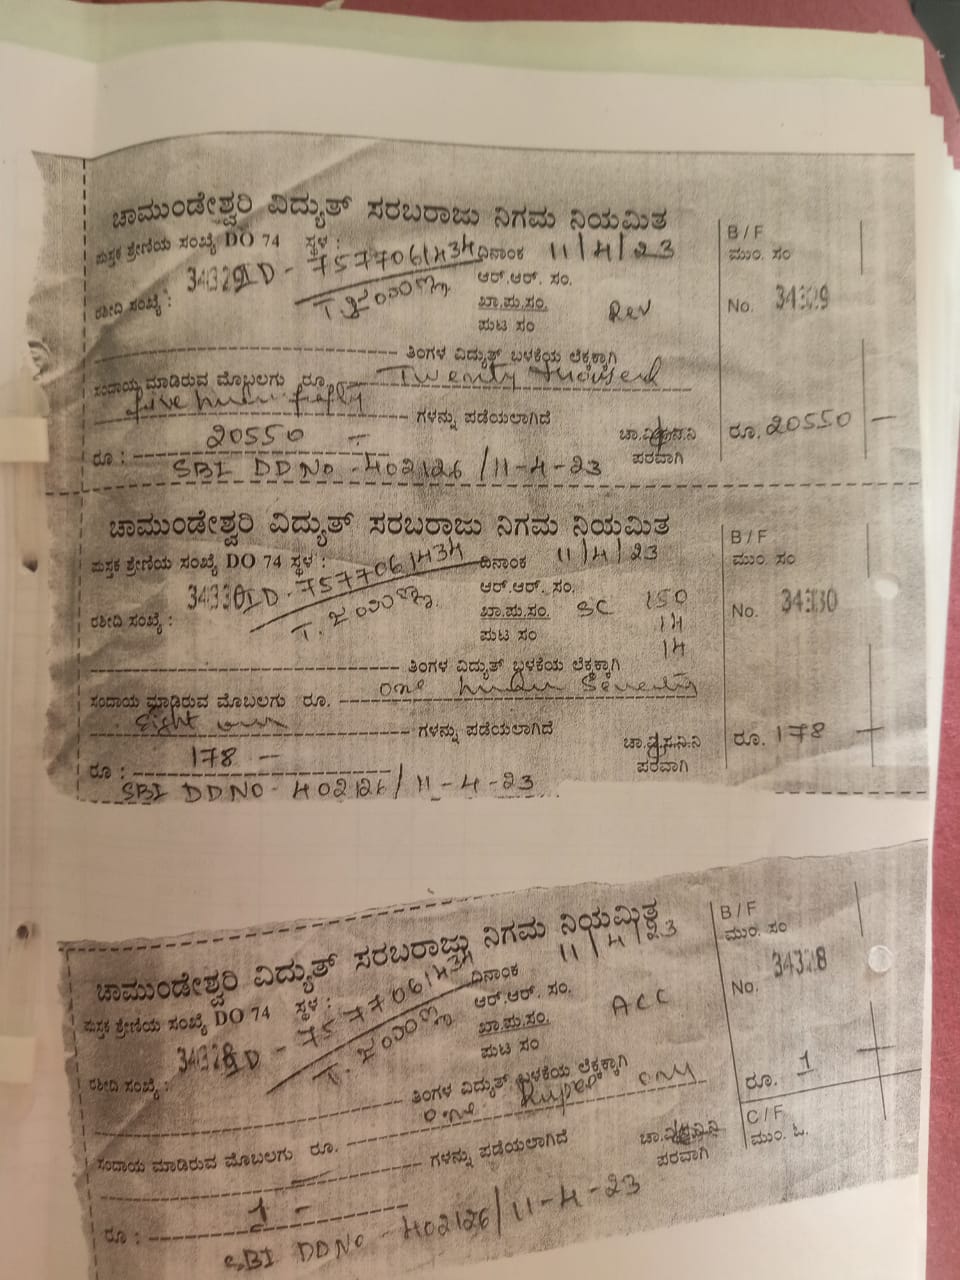 ಚಾಮುಂಡೇಶ್ವರಿ ವಿದ್ಯುತ್ ಸರಬರಾಜು ನಿಗಮ ನಿಯಮಿತ
ಪುಸ್ತಕ ಶ್ರೇಣಿಯ ಸಂಖ್ಯೆ DO 74 ಸ್ಥಳ : ದಿನಾಂಕ 11/4/23
ರಶೀದಿ ಸಂಖ್ಯೆ : 34329 ID - 7577061434 ಆರ್.ಆರ್. ಸಂ.
ಖಾ.ಪು.ಸಂ. Rev
ಪುಟ ಸಂ
ತಿಂಗಳ ವಿದ್ಯುತ್ ಬಳಕೆಯ ಲೆಕ್ಕಕ್ಕಾಗಿ
ಸಂದಾಯ ಮಾಡಿರುವ ಮೊಬಲಗು ರೂ. Twenty
five fifty ಗಳನ್ನು ಪಡೆಯಲಾಗಿದೆ
ರೂ : 20550 - ಚಾ.ವಿ.ಸ.ನಿ.ನಿ
ಪರವಾಗಿ
SBI DD NO - 402126 / 11-4-23
B / F
ಮುಂ. ಸಂ
No. 34329
ರೂ. 20550 -
ಚಾಮುಂಡೇಶ್ವರಿ ವಿದ್ಯುತ್ ಸರಬರಾಜು ನಿಗಮ ನಿಯಮಿತ
ಪುಸ್ತಕ ಶ್ರೇಣಿಯ ಸಂಖ್ಯೆ DO 74 ಸ್ಥಳ : ದಿನಾಂಕ 11/4/23
ರಶೀದಿ ಸಂಖ್ಯೆ : 34330 ID - 7577061434 ಆರ್.ಆರ್. ಸಂ.
ಖಾ.ಪು.ಸಂ. SC 150
ಪುಟ ಸಂ 14
14
ತಿಂಗಳ ವಿದ್ಯುತ್ ಬಳಕೆಯ ಲೆಕ್ಕಕ್ಕಾಗಿ
ಸಂದಾಯ ಮಾಡಿರುವ ಮೊಬಲಗು ರೂ. one
Eight ಗಳನ್ನು ಪಡೆಯಲಾಗಿದೆ
ರೂ : 178 - ಚಾ.ವಿ.ಸ.ನಿ.ನಿ
ಪರವಾಗಿ
SBI DD NO - 402126 / 11-4-23
B / F
ಮುಂ. ಸಂ
No. 34330
ರೂ. 178 -
ಚಾಮುಂಡೇಶ್ವರಿ ವಿದ್ಯುತ್ ಸರಬರಾಜು ನಿಗಮ ನಿಯಮಿತ
ಪುಸ್ತಕ ಶ್ರೇಣಿಯ ಸಂಖ್ಯೆ DO 74 ಸ್ಥಳ : ದಿನಾಂಕ 11/4/23
ರಶೀದಿ ಸಂಖ್ಯೆ : 34328 ID - 7577061434 ಆರ್.ಆರ್. ಸಂ.
ಖಾ.ಪು.ಸಂ. ACC
ಪುಟ ಸಂ
ತಿಂಗಳ ವಿದ್ಯುತ್ ಬಳಕೆಯ ಲೆಕ್ಕಕ್ಕಾಗಿ
ಸಂದಾಯ ಮಾಡಿರುವ ಮೊಬಲಗು ರೂ. one Rupee only
ಗಳನ್ನು ಪಡೆಯಲಾಗಿದೆ
ರೂ : 1 - ಚಾ.ವಿ.ಸ.ನಿ.ನಿ
ಪರವಾಗಿ
SBI DD NO - 402126 / 11-4-23
B / F
ಮುಂ. ಸಂ
No. 34328
ರೂ. 1
C / F
ಮುಂ. ಓ.